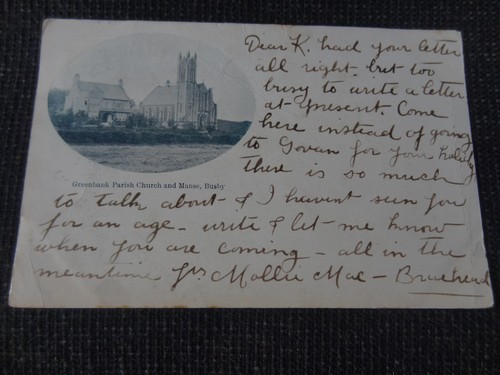 Dear K. had your letter
all right. but too
busy to write a letter
at present. Come
here instead of going
to Govan for your holiday
there is so much
Greenbank Parish Church and Manse, Busby
to talk about & I havent seen you
for an age - write & let me know
when you are coming - all in the
meantime Yrs Mollie Mac - Braehead